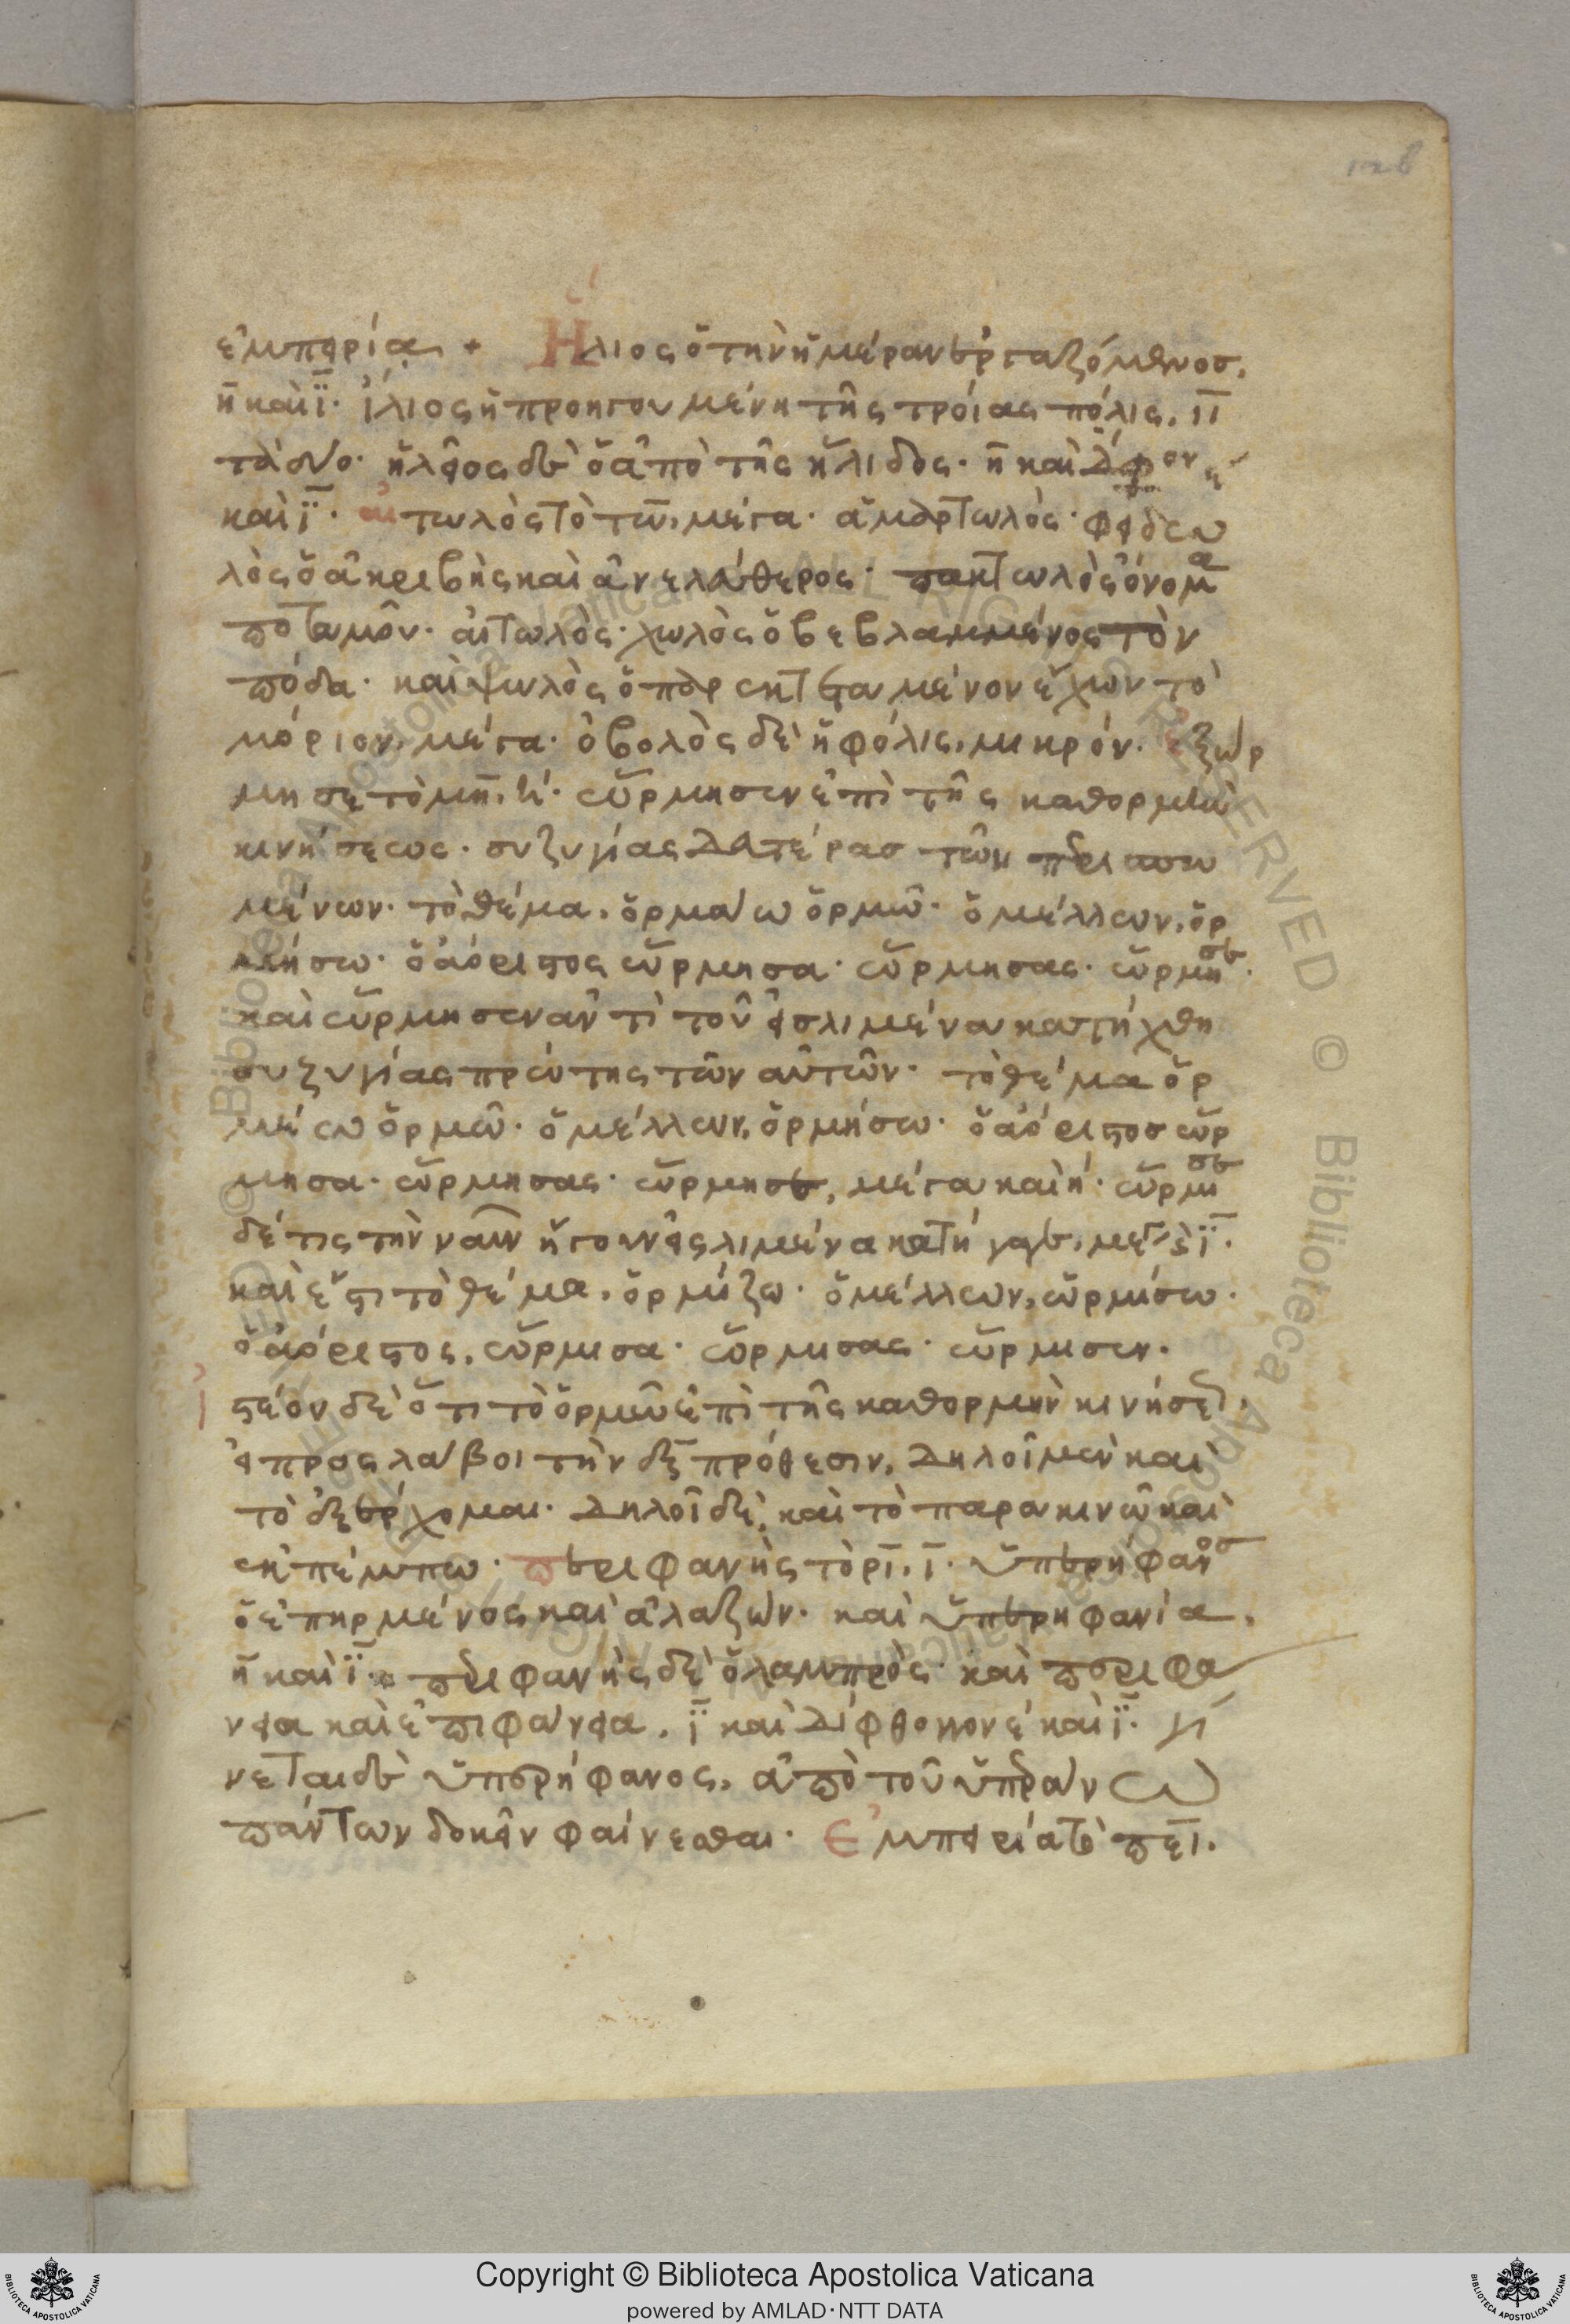 ἐμπειρία + Ἥλιος ὁ τὴν ἡμέραν ἐργαζόμενος,
η καὶ ϊ· ἴλιος ἡ προηγουμένη τῆς τροίας πόλις, ιι
τὰ δύο· ἡλεῖος δὲ ὁ ἀπὸ τῆς ἤλιδος· η καὶ
καὶ ϊ· αἰτωλὸς τὸ τω, μέγα· ἁμαρτωλός· φειδω
λὸς ὁ ἀκριβὴς καὶ ἀνελεύθερος· πακτωλὸς ὄνομα
ποταμοῦ· αἰτωλός· χωλὸς ὁ βεβλαμμένος τὸν
πόδα· καὶ ψωλὸς ὁ παρεκτεταμένον ἔχων τὸ
μόριον, μέγα· ὀβολὸς δὲ ἡ φόλις, μικρόν. ἐξώρ
μησε τὸ μη, η· ὥρμησεν ἐπὶ τῆς καθορμὴν
κινήσεως· συζυγίας δευτέρας τῶν περισπω
μένων· τὸ θέμα, ὁρμάω ὁρμῶ· ὁ μέλλων, ὁρ
μήσω· ὁ ἀόριστος ὥρμησα· ὥρμησας· ὥρμησε·
καὶ ὥρμησεν ἀντὶ τοῦ εἰς λιμένα κατήχθη
συζυγίας πρώτης τῶν αὐτῶν· τὸ θέμα ὁρ
μέω ὁρμῶ· ὁ μέλλων, ὁρμήσω· ὁ ἀόριστος ὥρ
μησα· ὥρμησας· ὥρμησε, μέγα καὶ η· ὥρμισε
δέ τις τὴν ναῦν ἤγουν εἰς λιμένα κατήγαγε, μέγα ϊ·
καὶ ἔστι τὸ θέμα, ὁρμίζω· ὁ μέλλων, ὡρμίσω·
ὁ ἀόριστος, ὥρμισα· ὥρμισας· ὥρμισεν·
ἰστέον δὲ ὅτι τὸ ὁρμῶ ἐπὶ τῆς καθορμὴν κινήσεως,
εἰ προσλάβοι τὴν ἐξ πρόθεσιν, δηλοῖ μὲν καὶ
τὸ ἐξέρχομαι· δηλοῖ δὲ, καὶ τὸ παρακινῶ καὶ
ἐκπέμπω· περιφανὴς τὸ ρι, ι· ὑπερήφανος
ὁ ἐπηρμένος καὶ ἀλαζών· καὶ ὑπερηφανία,
η καὶ ϊ· περιφανὴς δὲ ὁ λαμπρός· καὶ περιφά
νεια καὶ ἐπιφάνεια, ϊ καὶ δίφθογγον ε καὶ ϊ· γί
νεται δὲ ὑπερήφανος, ἀπὸ τοῦ ὑπεράνω
πάντων δοκεῖν φαίνεσθαι· Ἐμπειρία τὸ πει.